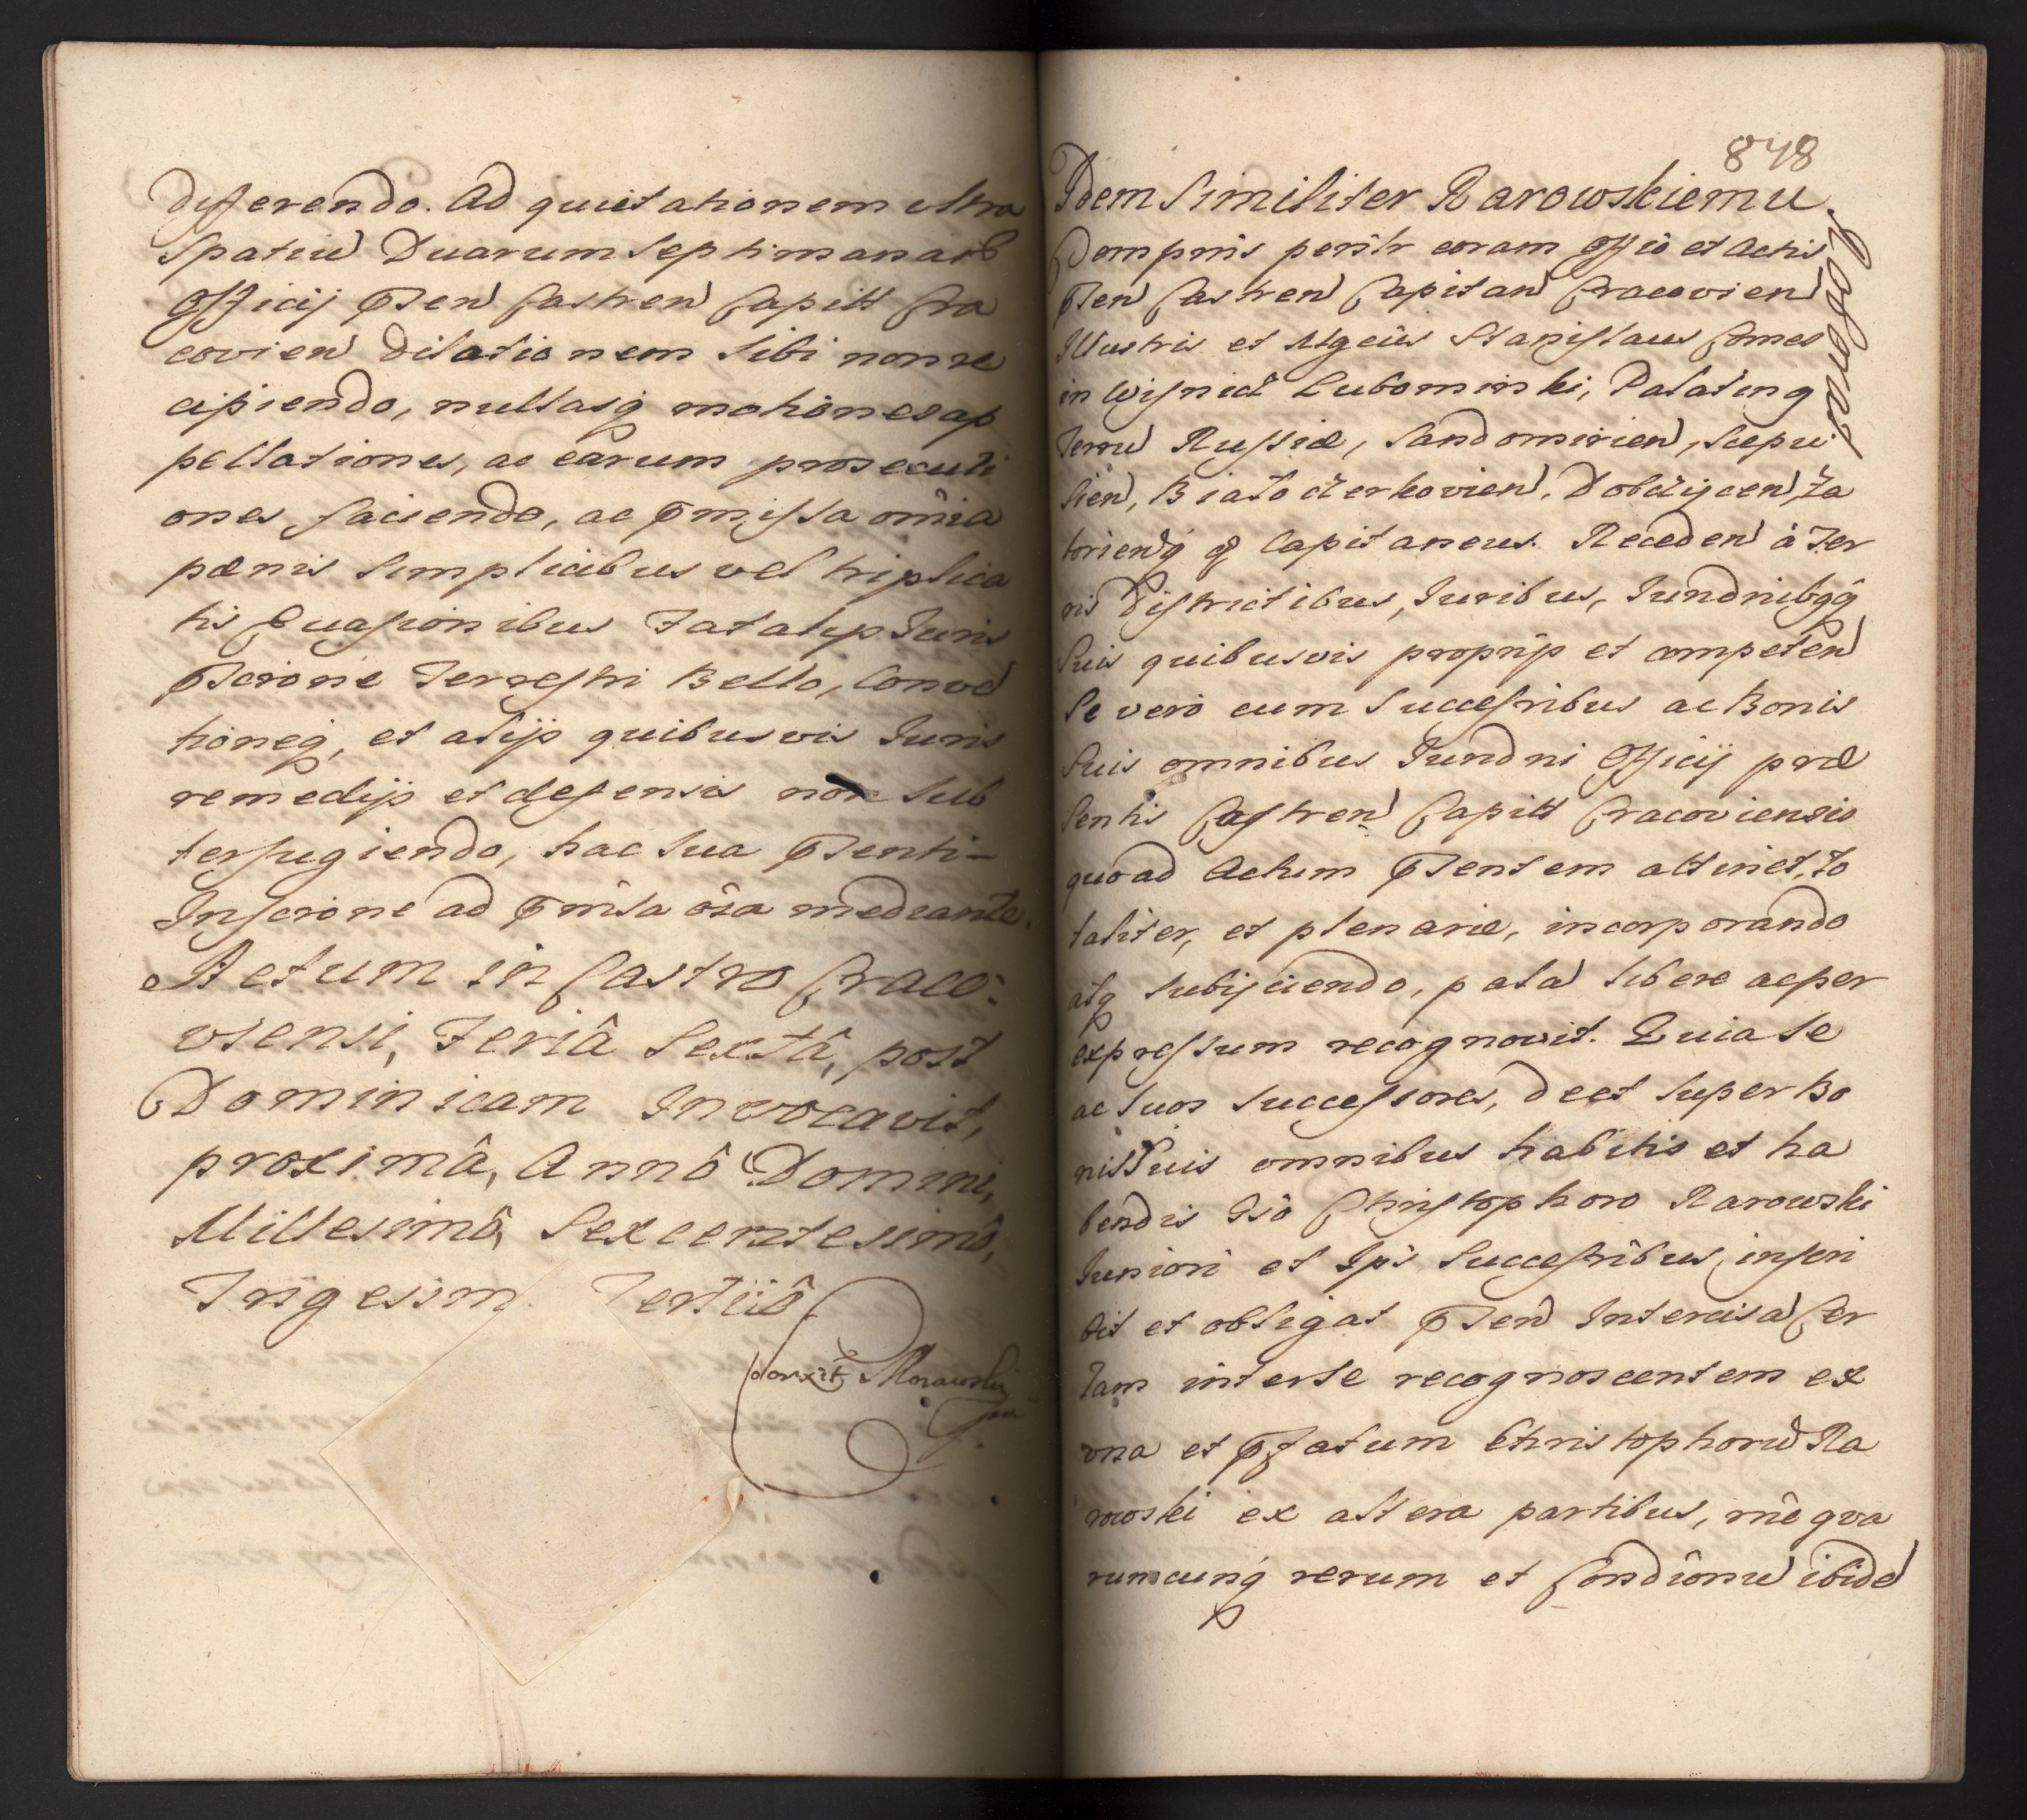 differendo. Ad quietationem ultra
Spatiū Duarum Septimanarū
Officij p̄sen Castren Capitt Cra
covien Dilationem Sibi non re
cipiendo, nullasq̨ motiōnes ap
pellationes, ac earum prosecuti
ones faciendo, ac p̄missa om̂ia
pœnis Simplicibus vel triplica
tis Evasionibus
p̄scr̄one Terrestri Bello, Conve
tioneq̨, et alijs quibusvis Iuris
remedijs et defensis non Sub
terfugiendo, hac Sua p̄senti-
Inscr̄one ad p̄mîsa ôîa mediante.
Actum in Castro Craco:
viensi, Feriâ Sextâ, post
Dominicam Invocavit,
proximâ, Annô Domini,
Millesimô, Sexcentesimô,
Trigesim Tertiô
Morawski
848
Idem Similiter Rarowskiemu
Zobem̂
Comp̂nŝ
per̂str coram Offîo et Actis
p̄sen Castren Capitan Cracovien
Illustris et Mgcûs Stanislaus Comes
in Wisnicz Lubomirski, Palating
Terrū Russiæ, Sandomirien, Scepu
sien, Biało czerkovien, Dobczycen, Za
torienq̨ q̨ Capitaneus. Receden à Ter
ris Districtibus, Iuribus, Iurdnibq̨q̨
Suis quibusvis proprijs et competen
Se vero cum Succeſsribus ac Bonis
Suis omnibus Iurdni Officij præ
sentis Castren Capitt Cracoviensis
quoad Actum p̄sentem attinet, to
taliter, et plenariæ, incorporando
atq̨ subijciendo, palā libere ac per
expreſsum recognovit. Quia Se
ac Suos Succeſsores, de et Super Bo
nis Suis omnibus habitis et ha
bendis Gsô Christophoro Rarowski
Iuniori et Ips̄ Succeſsribus, inscri
bit et obligat p̄sen Intercisā Cer
tam inter Se recognoscentem ex
una et p̄fatum Christophorū Ra
rowski ex altera partibus, r̂ne qva
rumcunq̨ rerum et Condîonū ibidē